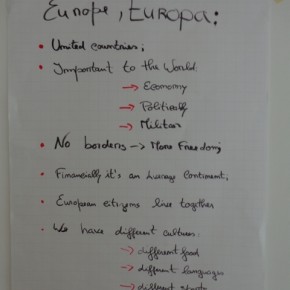 Europe, Europa:
• United countries;
• Important to the World:
→ Economy
→ Politically
→ Militar
• No borders → More Freedom;
• Financially it's an continent;
• European citizens live together
• We have different cultures:
→ different food
→ different languages
→ different